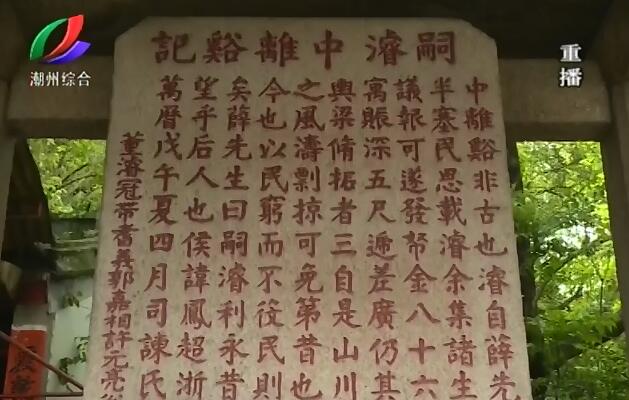 潮州综合
重播
嗣濬中離谿記
中離谿非古也濬自薛先
半塞民思載濬余集諸生
議報可遂發帑金八十六
寓賑深五尺遞差廣仍其
輿梁脩拓者三自是山川
之風濤剽掠可免第昔也
今也以民窮而不役民則
矣薛先生曰嗣濬利永昔
望乎后人也侯諱鳳超浙
萬曆戊午夏四月司諫氏
董濬冠帶耆義郭嘉相許元亮